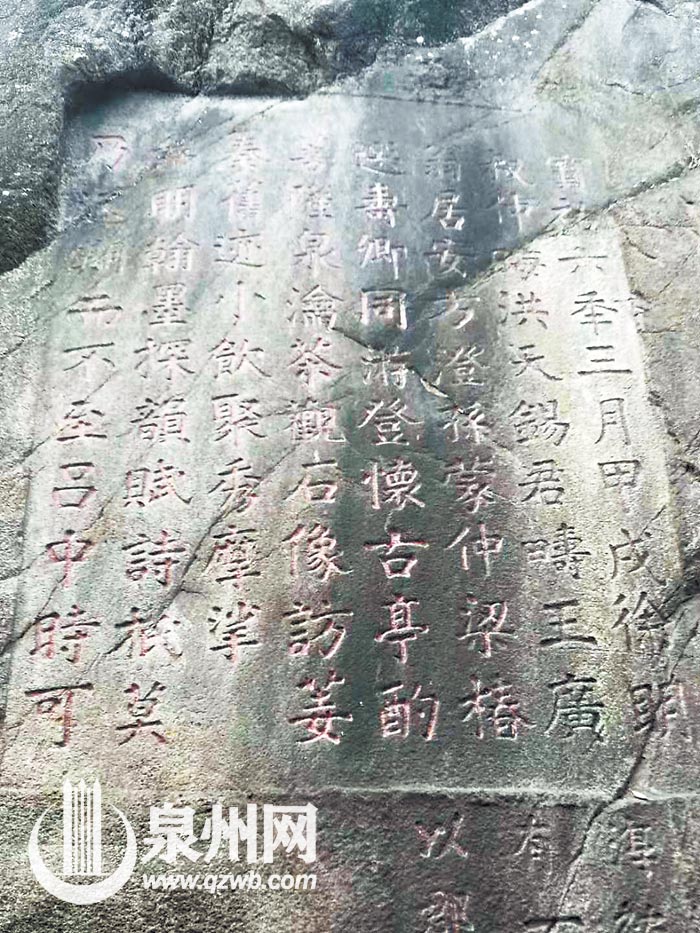 寶祐六秊三月甲戌徐明
叔仲晦洪天錫君疇王廣
翁居安方澄孫蒙仲梁椿
選壽卿同游登懷古亭酌
菩薩泉瀹茶觀石像訪姜
秦舊迹小飲聚秀摩挲
明翰墨探韻賦詩抵莫
乃還期而不至呂中時可
有
以郡
泉州网
www.qzwb.com